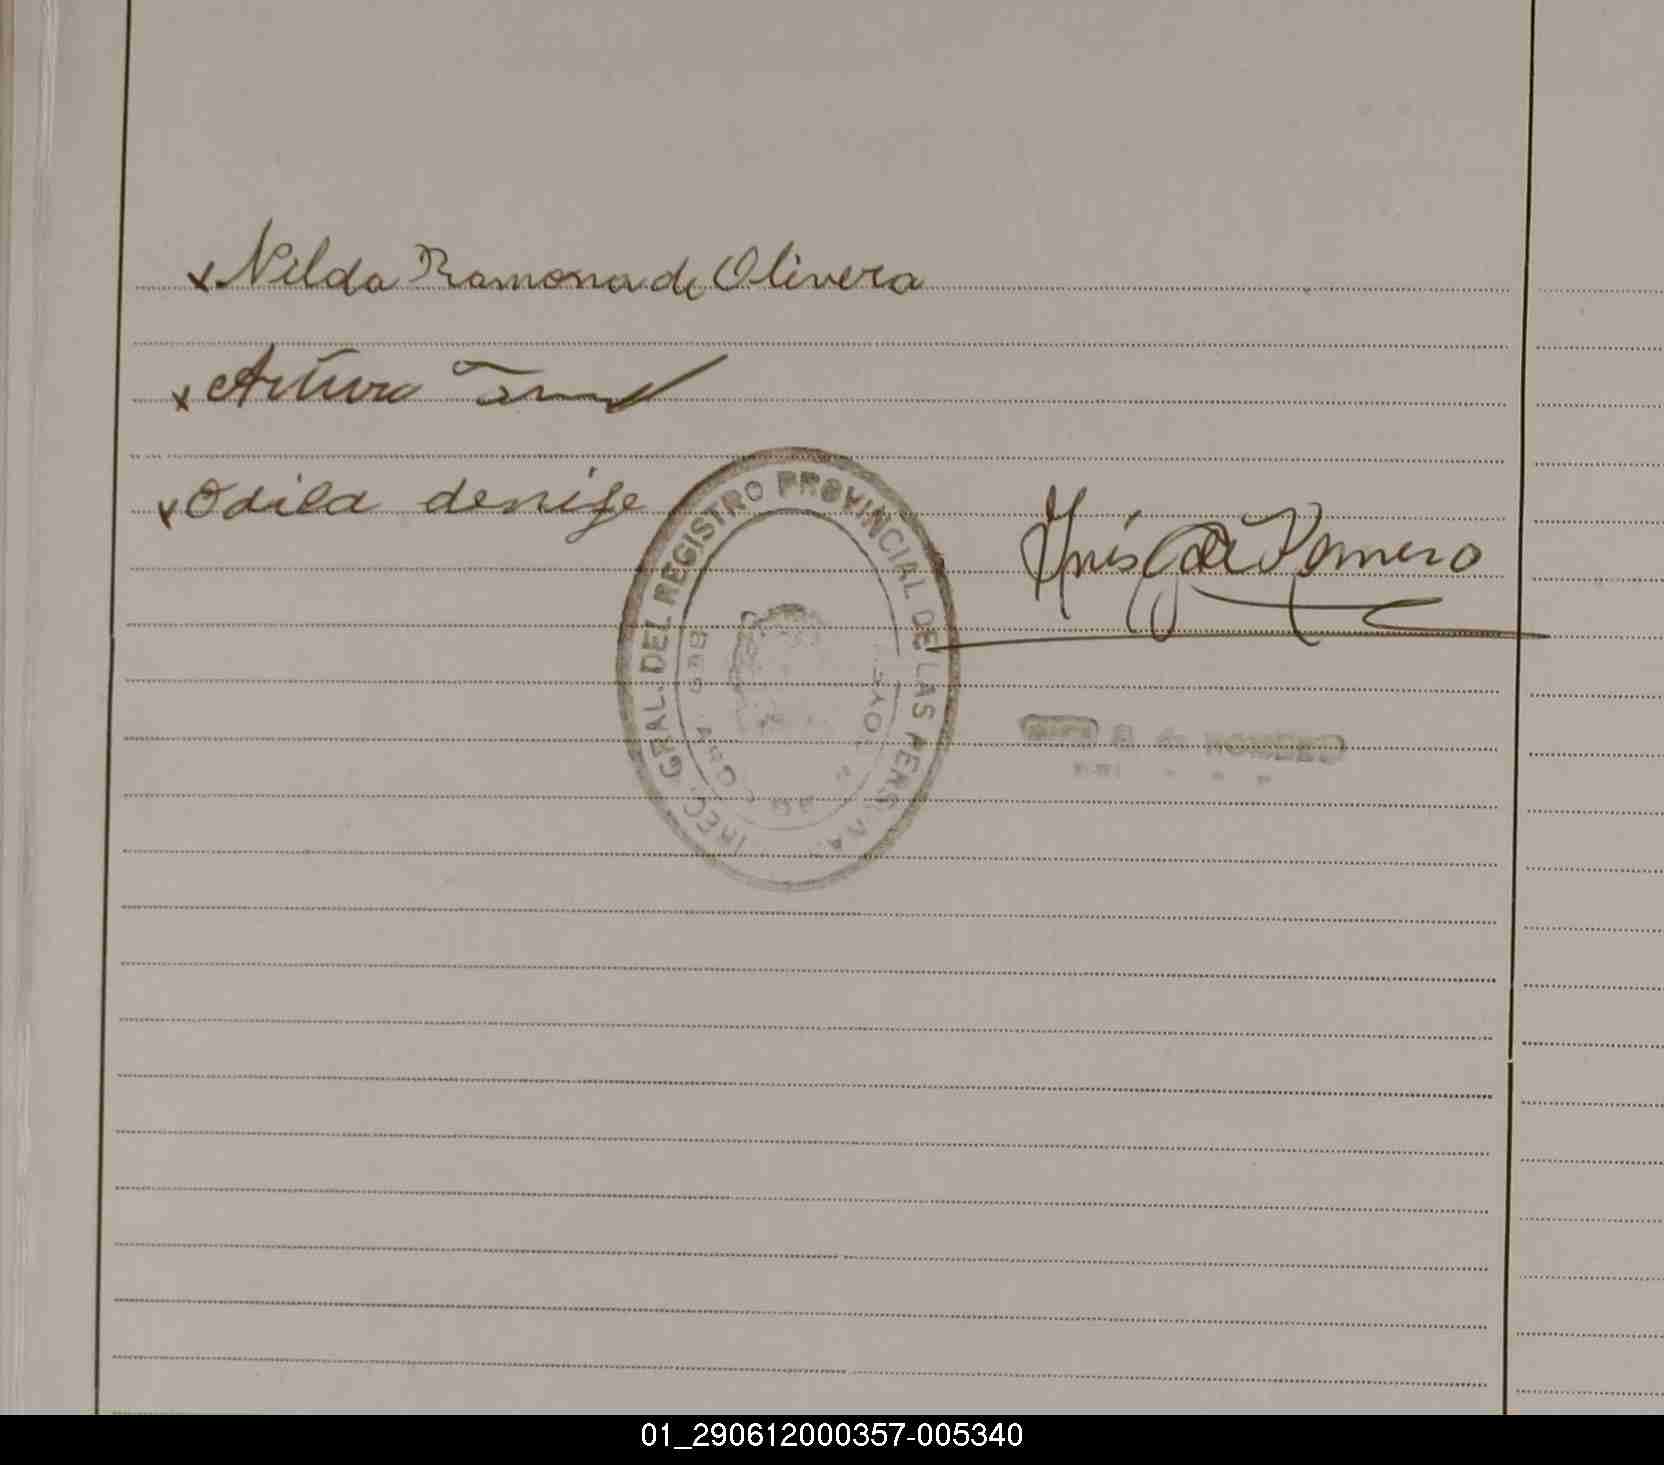 x Nilda Ramona de Olivera
x Arturo
x Odila denise
Inés G de Romero
DIREC. GRAL. DEL REGISTRO PROVINCIAL DE LAS PERSONAS
GOYA
INES G. de ROMERO
01_290612000357-005340